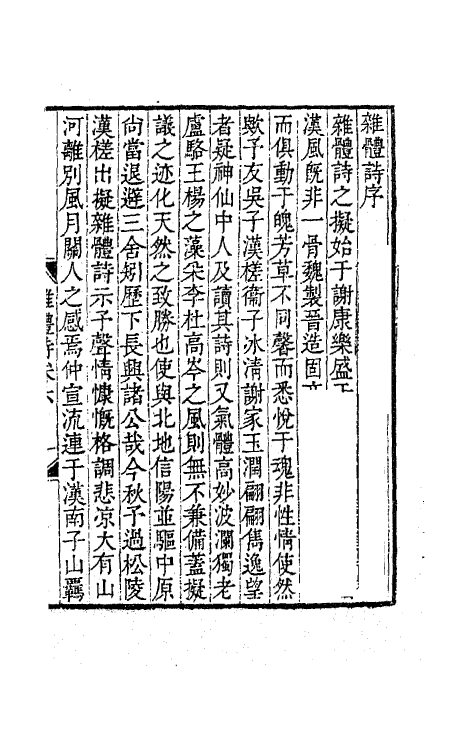 雜體詩序
雜體詩之擬始于謝康樂盛于
漢風旣非一骨魏製晉造固
而俱動于魄芳草不同馨而悉悅于魂非性情使然
歟予友吳子漢槎衞子冰淸謝家玉潤翩翩雋逸望
者疑神仙中人及讀其詩則又氣體高妙波瀾獨老
盧駱王楊之藻朵李杜高岑之風則無不兼備蓋擬
議之迹化天然之致勝也使與北地信陽並驅中原
尙當退避三舍矧歷下長興諸公哉今秋予過松陵
漢槎出擬雜體詩示予聲情慷慨格調悲凉大有山
河離別風月關人之感焉仲宣流連于漢南子山羈